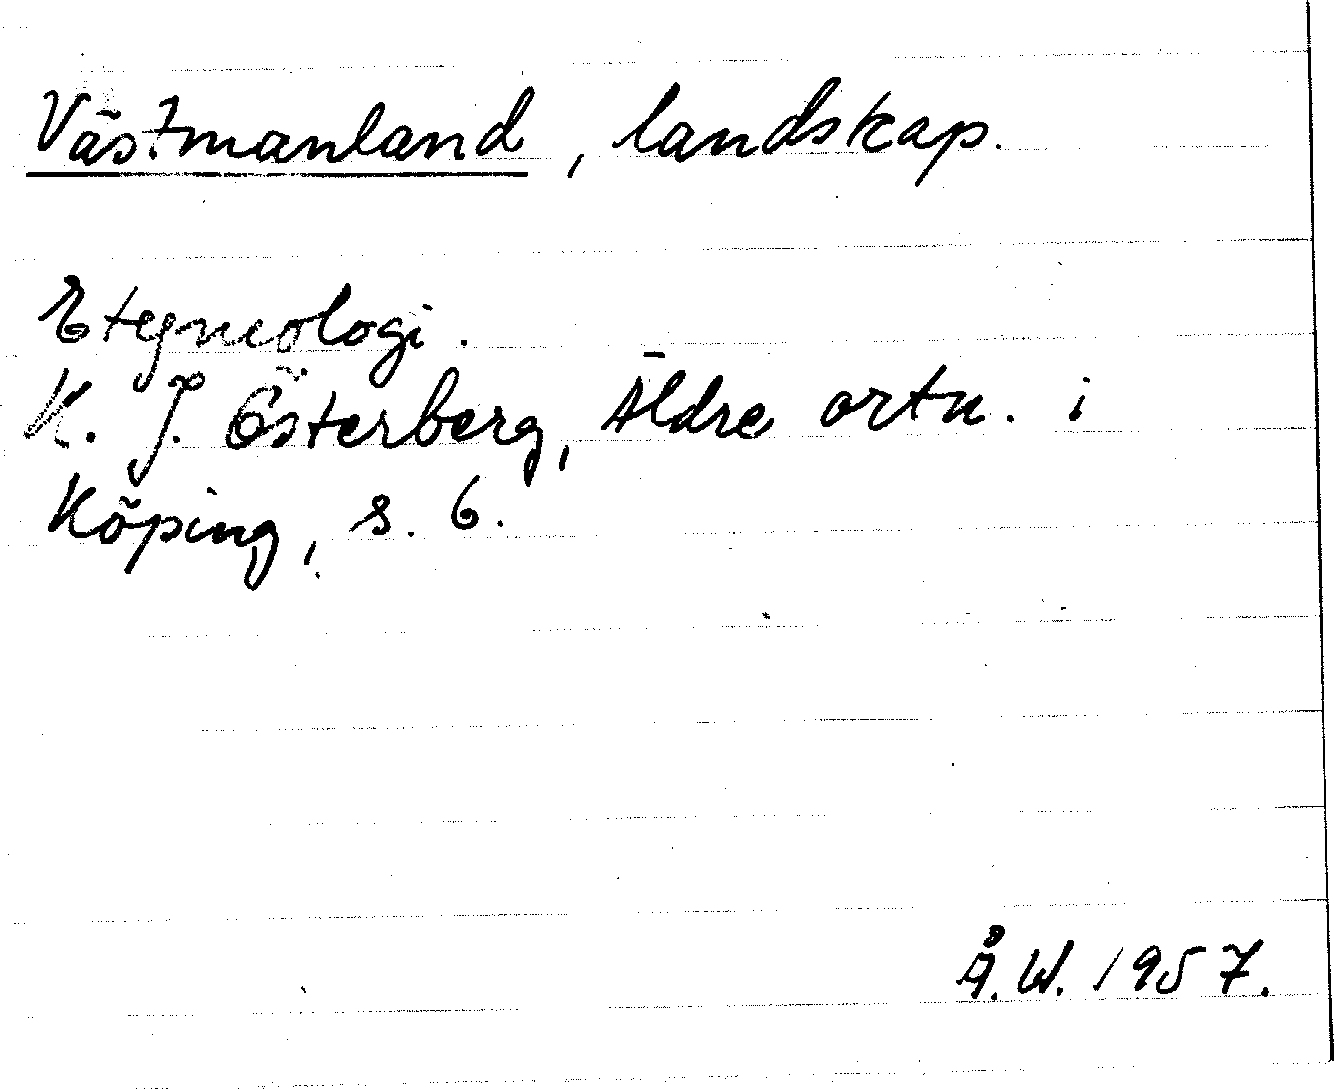 Västmanland, landskap.
Etymologi.
K. J. Österberg, Äldre ortn. i
Köping, s. 6.
Å.W. 1957.